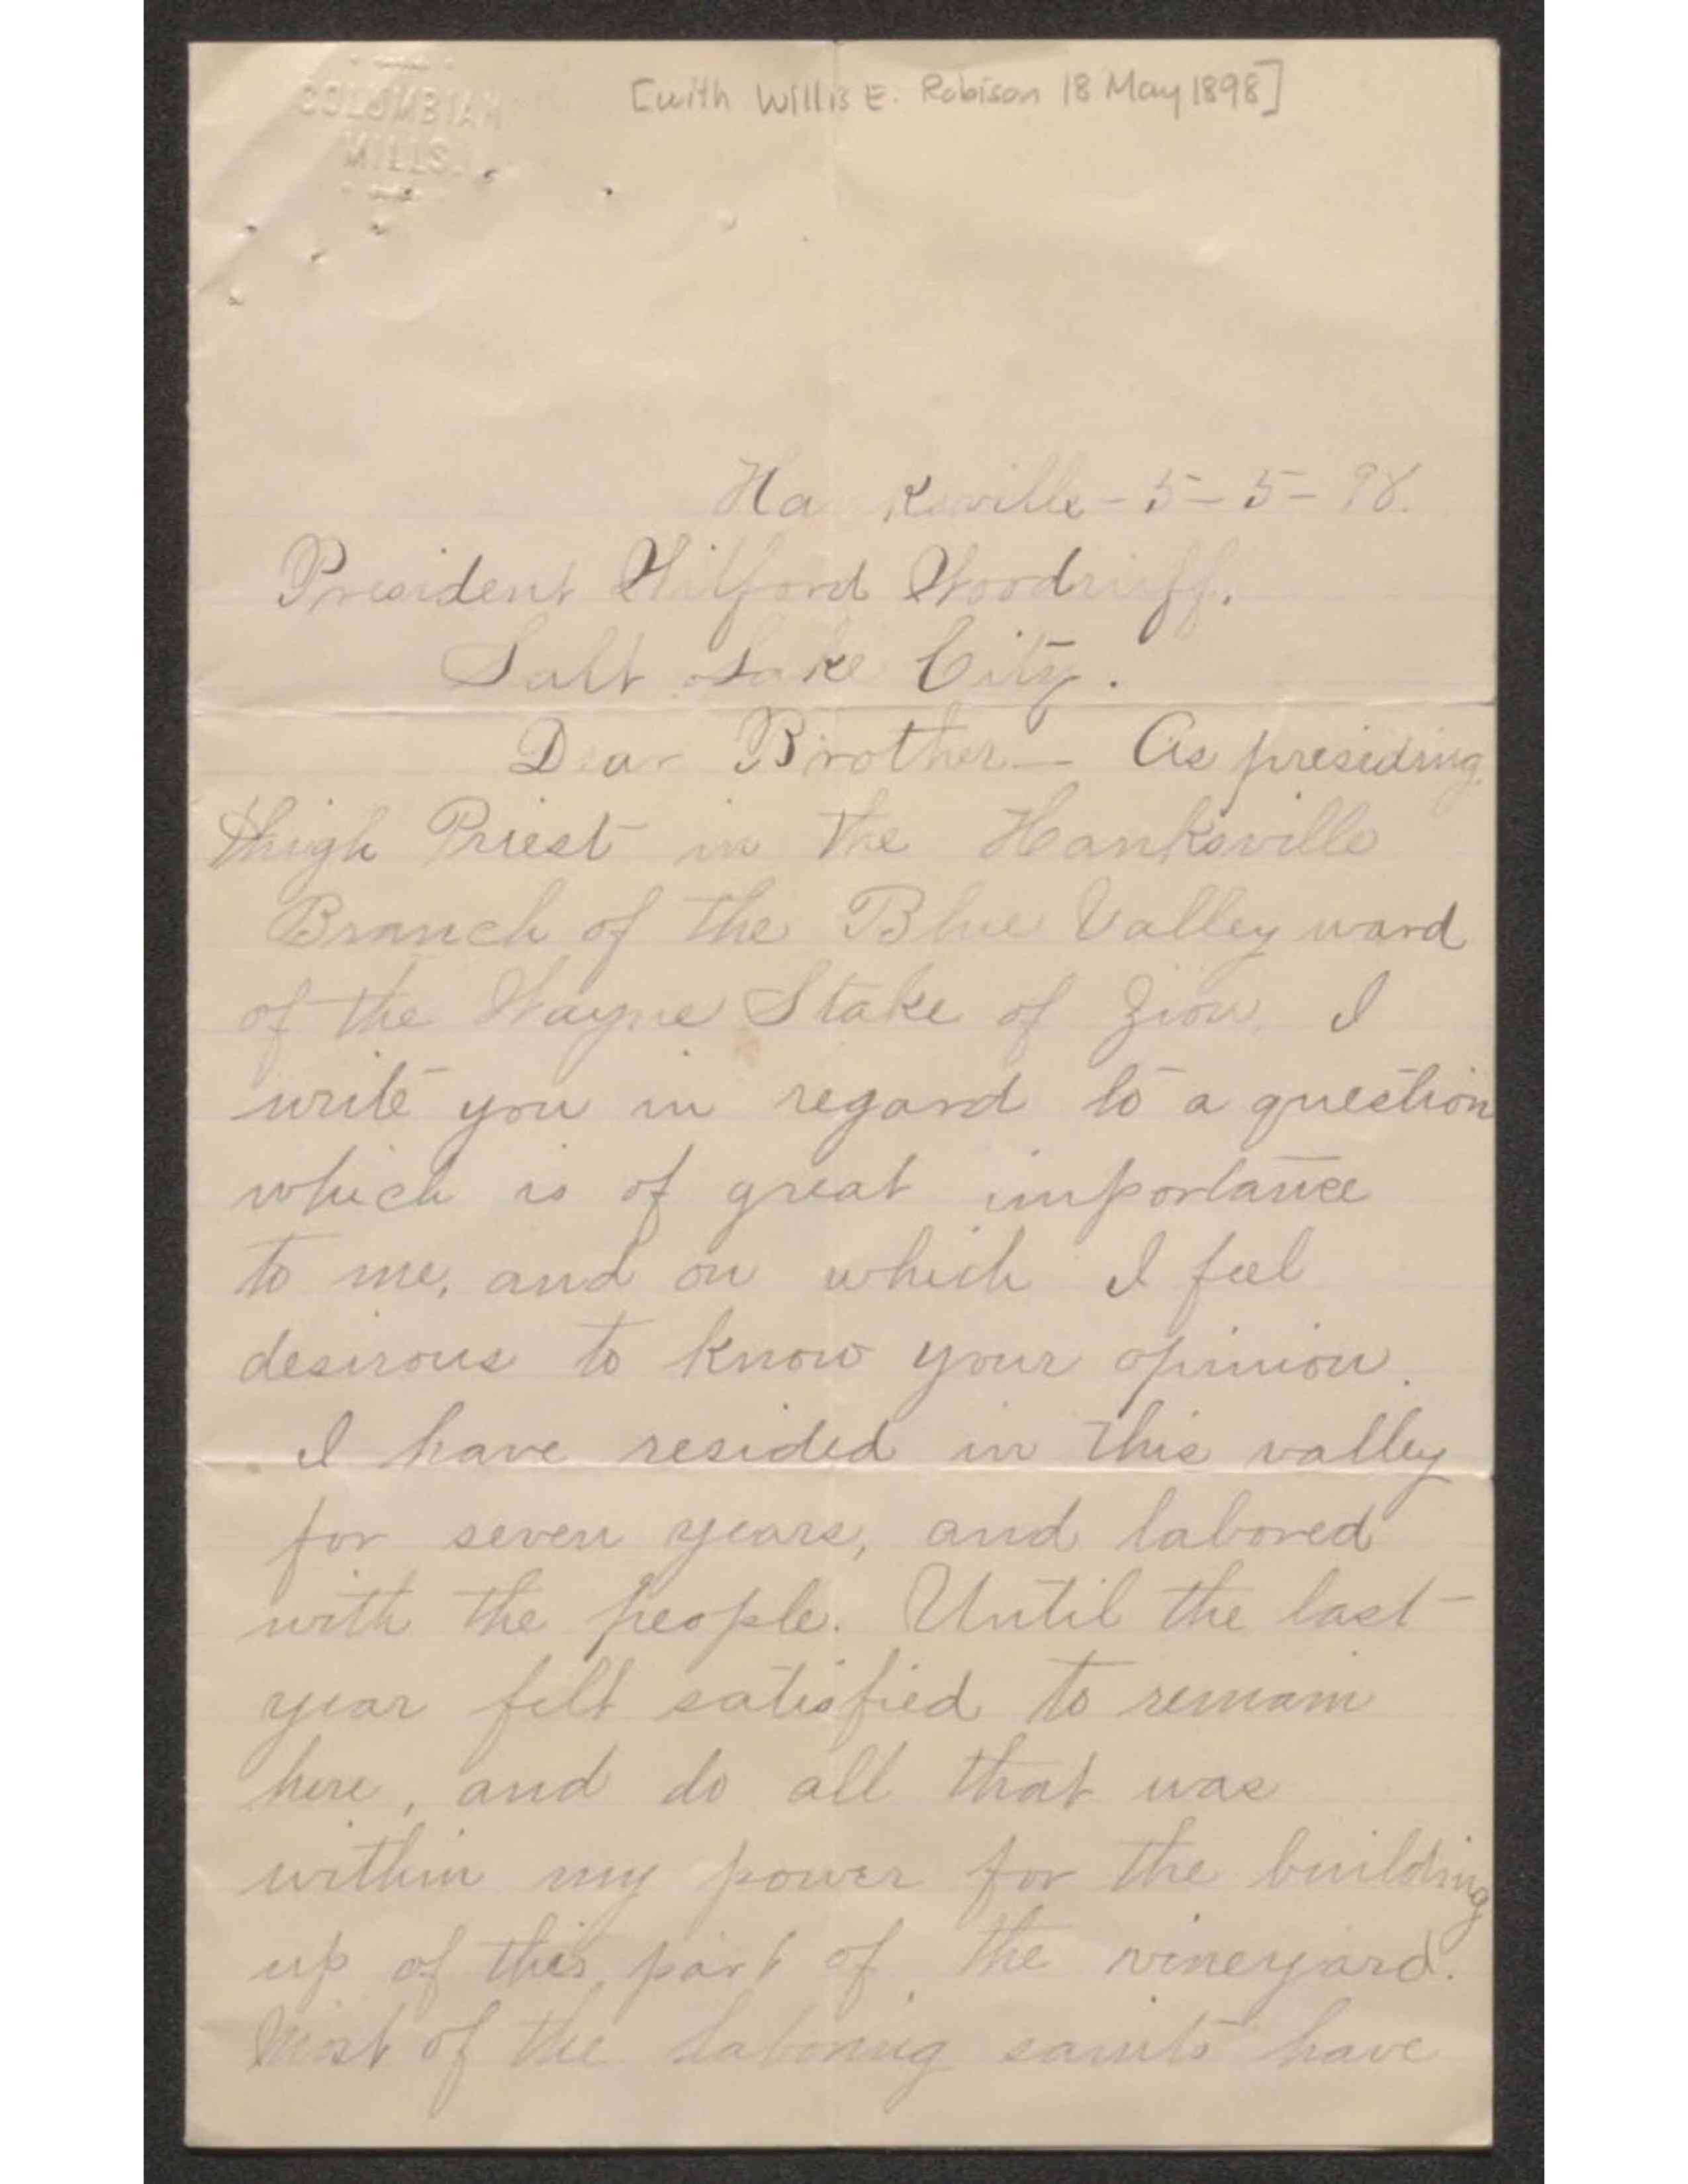 COLUMBIAN
MILLS.
[with Willis E. Robison 18 May 1898]
Ha ksville - 5 - 5 - 98.
President Wilford Woodruff.
Salt Lake City.
Dear Brother — As presiding
High Priest in the Hanksville
Branch of the Blue Valley ward
of the Wayne Stake of Zion, I
write you in regard to a question
which is of great importance
to me, and on which I feel
desirous to know your opinion.
I have resided in this valley
for seven years, and labored
with the people. Until the last
year felt satisfied to remain
here, and do all that was
within my power for the building
up of this part of the vineyard.
Most of the laboring saints have